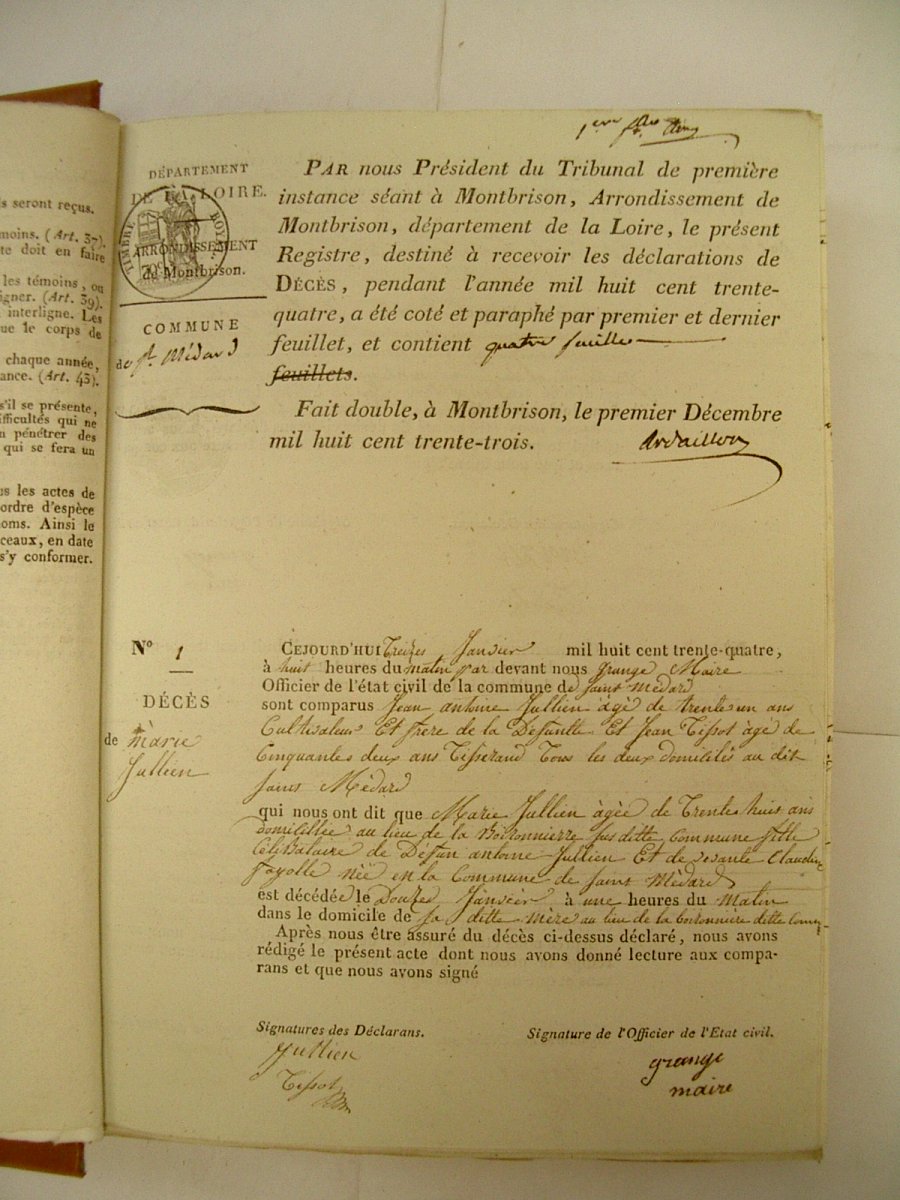 s seront reçus.
moins. (Art. 37).
te doit en faire
les témoins, ou
igner. (Art. 39).
interligne. Les
ue le corps de
chaque année,
ance. (Art. 43).
s'il se présente,
ifficultés qui ne
n pénétrer des
qui se fera un
us les actes de
ordre d'espèce
oms. Ainsi le
ceaux, en date
s'y conformer.
DÉPARTEMENT
DE LA LOIRE.
TIMBRE ROYAL
ARRONDISSEMENT
de Montbrison.
COMMUNE
de St. Médard
PAR nous Président du Tribunal de première
instance séant à Montbrison, Arrondissement de
Montbrison, département de la Loire, le présent
Registre, destiné à recevoir les déclarations de
DÉCÈS, pendant l'année mil huit cent trente-
quatre, a été coté et paraphé par premier et dernier
feuillet, et contient quatre feuilles
feuillets.
Fait double, à Montbrison, le premier Décembre
mil huit cent trente-trois.
Ardaillon
N° 1
DÉCÈS
de marie
Jullien
CEJOURD'HUI Treizes Janvier mil huit cent trente-quatre,
à huit heures du matin par devant nous grange Maire
Officier de l'état civil de la commune de saint Médard
sont comparus Jean antoine Jullien àgé de trente un ans
Cultivateur Et frere de la Defuntte Et Jean Tissot àgé de
Cinquantes deux ans Tisserand Tous les deux domiciliés au dit
saint Médard
qui nous ont dit que Marie Jullien àgée de Trente huit ans
domicillie au lieu de la Boironnierre sus ditte Commune fille
Célibataire de Défun antoine Jullien Et de vivante Claudine
fayolle née en la Commune de saint Médard
est décédée le Douzes Janvier à une heures du Matin
dans le domicile de sa ditte mère au lieu de la boironnière ditte Comm
Après nous être assuré du décès ci-dessus déclaré, nous avons
rédigé le présent acte dont nous avons donné lecture aux compa-
rans et que nous avons signé
Signatures des Déclarans.
Signature de l'Officier de l'Etat civil.
Jullien
Tissot
grange
maire